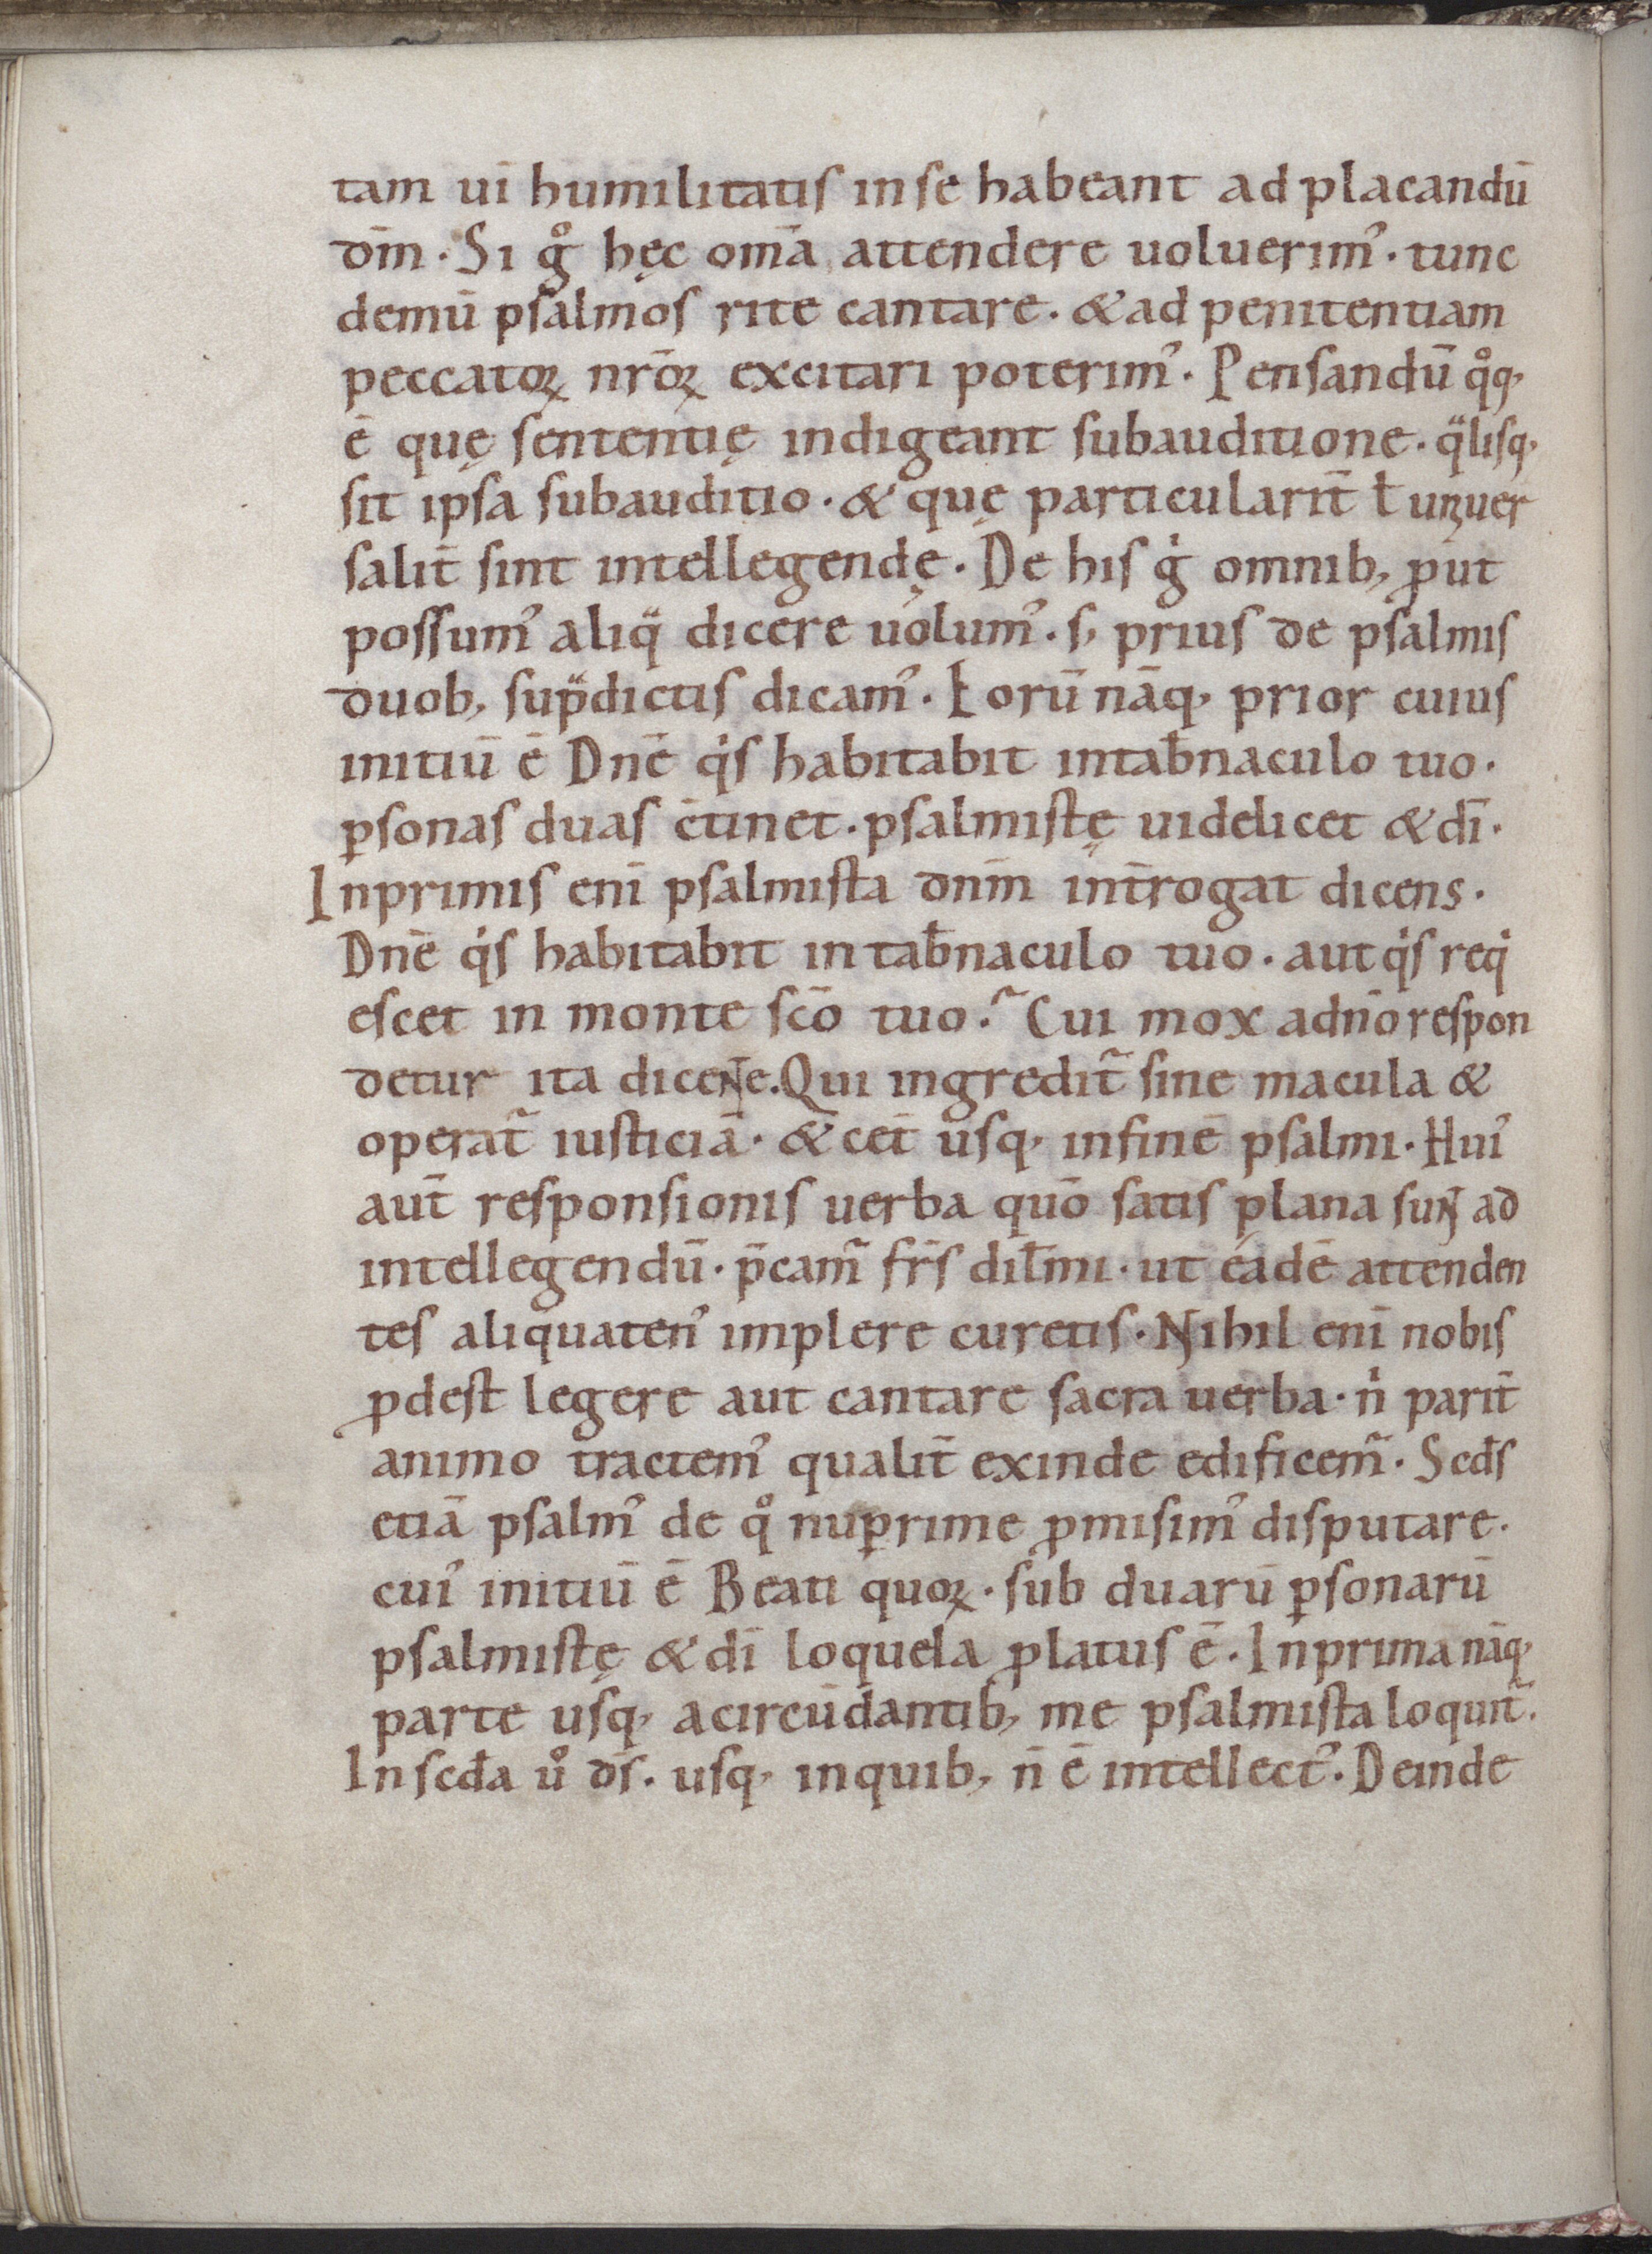 tam uī humilitatis in se habeant ad placandū
dm̄. Si gͦ hęc om̄a attendere uoluerimꝰ. tunc
demū psalmos rite cantare. & ad penitentiam
peccatoꝝ nr̄oꝝ excitari poterimꝰ. Pensandū qͦq;
ē quę sententię indigeant subauditione. qᷓlisq;
sit ipsa subauditio. & quę particularit̄ ł uniuer
salit̄ sint intellegendę. De his gͥ omnib; ꝓut
possumꝰ aliqᷓ dicere uolumꝰ. s; prius de psalmis
duob; supᷓdictis dicamꝰ. Eorū nāq; prior cuius
initiū ē Dn̄e qͥs habitabit in tab̄naculo tuo.
ꝑsonas duas c̄tinet. psalmistę uidelicet & dī.
Inprimis enī psalmista dn̄m int̄rogat dicens.
Dn̄e qͥs habitabit in tab̄naculo tuo. aut qͥs reqͥ
escet in monte sc̄o tuo? Cui mox a dn̄o respon
detur ita dicente. Qui ingredit᷑ sine macula &
operat᷑ iusticiā. & cet̄ usq; in finē psalmi. Huiꝰ
aut̄ responsionis uerba quō satis plana sunt ad
intellegendū. p̄cam᷑ fr̄s dil̄mi. ut eadē attenden
tes aliquatenꝰ implere curetis. Nihil enī nobis
ꝓdest legere aut cantare sacra uerba. nͥ parit̄
animo tractemꝰ qualit̄ exinde edificem᷑. Scd̄s
etiā psalmꝰ de qͦ nuꝑrime ꝓmisimꝰ disputare.
cuiꝰ initiū ē Beati quoꝝ. sub duarū ꝑsonarū
psalmistę & dī loquela ꝓlatus ē. In prima nāq;
parte usq; a circūdantib; me psalmista loquit᷑.
In scd̄a uͦ ds̄. usq; in quib; n̄ ē intellectꝰ. Deinde